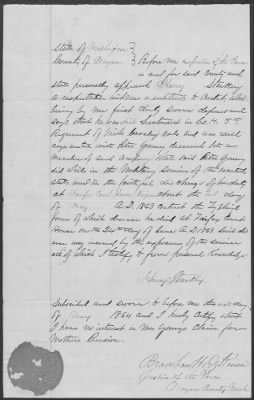 State of Michigan
County of Wayne } Before me a Justice of the Peace
in and for said County and
State personally appeared Henry Starkey
a respectable witness & entitled to Credit, who
being by me first duly sworn deposes and
says that he was Lieutenant in Co. H. 5th
Regiment of Mich Cavalry Vols and was well
acquainted with Peter Young deceased late a
member of said Company. That said Peter Young
did while in the Military Service of the United
States and in the faithful discharge of his duty
at Fairfax Court House on or about the day
of May A.D. 1863 contract the Typhoid
fever of which disease he died at Fairfax Court
House on the day of June A.D. 1863. Said dis-
ease was caused by the exposures of the service
all of which I testify to from personal Knowledge
Henry Starkey
Subscribed and sworn to before me this day
of May 1864 and I hereby certify that
I have no interest in Mrs Young's Claim for
Mothers Pension.
Justice of the Peace
Wayne County Mich